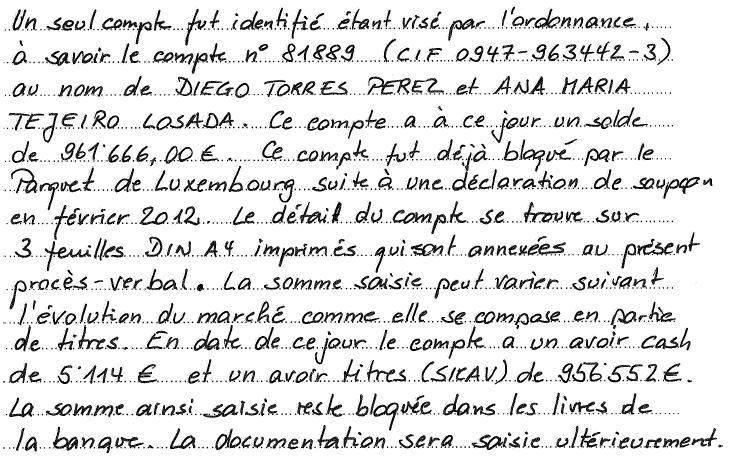 Un seul compte fut identifié étant visé par l'ordonnance,
à savoir le compte n° 81889 (CIF 0947-963442-3)
au nom de DIEGO TORRES PEREZ et ANA MARIA
TEJEIRO LOSADA. Ce compte a à ce jour un solde
de 961'666,00 €. Ce compte fut déjà bloqué par le
Parquet de Luxembourg suite à une déclaration de soupçon
en février 2012. Le détail du compte se trouve sur
3 feuilles DIN A4 imprimés qui sont annexées au présent
procès-verbal. La somme saisie peut varier suivant
l'évolution du marché comme elle se compose en partie
de titres. En date de ce jour le compte a un avoir cash
de 5'114 € et un avoir titres (SICAV) de 956'552 €.
La somme ainsi saisie reste bloquée dans les livres de
la banque. La documentation sera saisie ultérieurement.